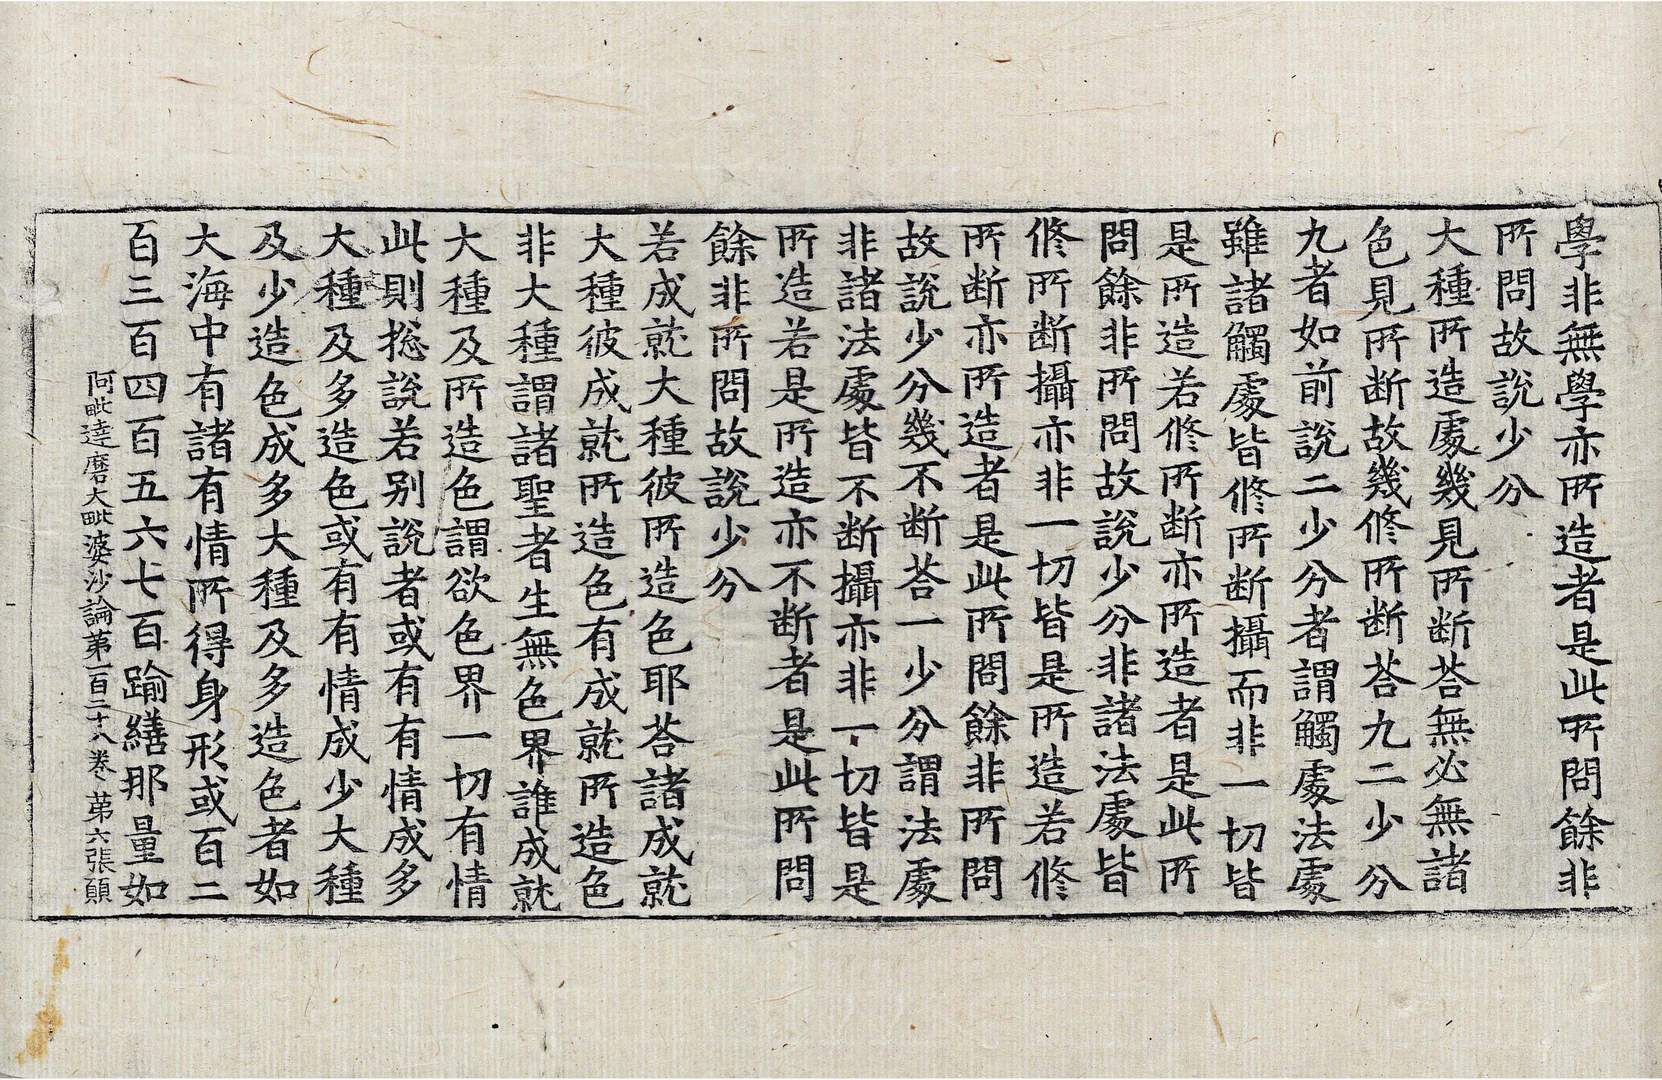 學非無學亦所造者是此所問餘非
所問故說少分
大種所造處幾見所斷荅無必無諸
色見所斷故幾修所斷荅九二少分
九者如前說二少分者謂觸處法處
雖諸觸處皆修所斷攝而非一切皆
是所造若修所斷亦所造者是此所
問餘非所問故說少分非諸法處皆
修所斷攝亦非一切皆是所造若修
所斷亦所造者是此所問餘非所問
故說少分幾不斷荅一少分謂法處
非諸法處皆不斷攝亦非一切皆是
所造若是所造亦不斷者是此所問
餘非所問故說少分
若成就大種彼所造色耶荅諸成就
大種彼成就所造色有成就所造色
非大種謂諸聖者生無色界誰成就
大種及所造色謂欲色界一切有情
此則捴說若別說者或有有情成多
大種及多造色或有有情成少大種
及少造色成多大種及多造色者如
大海中有諸有情所得身形或百二
百三百四百五六七百踰繕那量如
阿毗達磨大毗婆沙論第一百三十八卷 第六張 顚